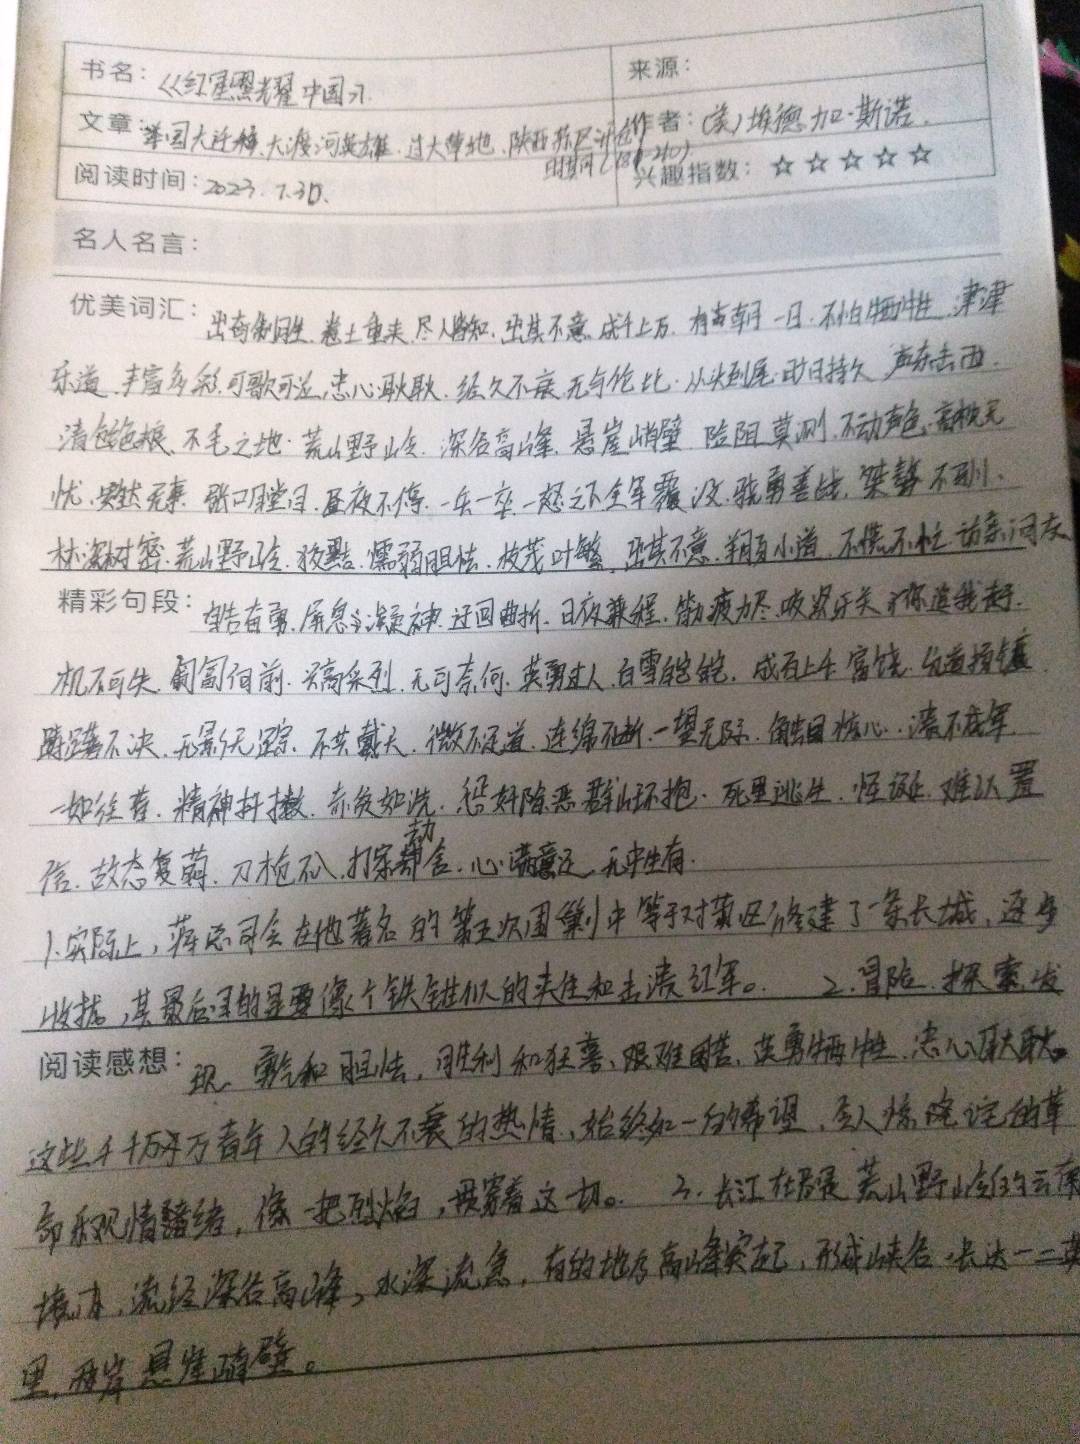 书名：《红星照耀中国》 来源：
文章：举国大迁移、大渡河英雄、过大草地、陕西苏区 作者：（美）埃德加·斯诺
阅读时间：2023.7.30. 兴趣指数：☆☆☆☆☆
名人名言：
优美词汇：出奇制胜、卷土重来、尽人皆知、出其不意、成千上万、有朝一日、不怕牺牲、津津
乐道、丰富多彩、可歌可泣、忠心耿耿、经久不衰、无与伦比、从头到尾、旷日持久、声东击西、
清色绝粮、不毛之地、荒山野岭、深谷高峰、悬崖峭壁、险阻莫测、不动声色、高枕无
忧、安然无事、张口瞠目、昼夜不停、一兵一卒、一怒之下、全军覆没、骁勇善战、桀骜不驯、
林深树密、荒山野岭、狡黠、懦弱胆怯、枝茂叶繁、出其不意、羊肠小道、不慌不忙、访亲问友
精彩句段：自告奋勇、屏息凝神、迂回曲折、日夜兼程、筋疲力尽、咬紧牙关、你追我赶、
机不可失、匍匐向前、兴高采烈、无可奈何、英勇过人、白雪皑皑、成百上千、富饶、
踌躇不决、无影无踪、不共戴天、微不足道、连绵不断、一望无际、触目惊心、溃不成军、
一如往昔、精神抖擞、赤贫如洗、惩奸除恶、群山环抱、死里逃生、怪诞、难以置
信、故态复萌、刀枪不入、打家劫舍、心满意足、无中生有
1.实际上，蒋总司令在他著名的第五次围剿中等于对苏区修建了一条长城，逐步
收拢，其最后目的是要像个铁钳似的夹住和击溃红军。 2.冒险、探索、发
阅读感想：现、勇气和胆怯，胜利和狂喜、艰难困苦、英勇牺牲、忠心耿耿。
这些千千万万青年人的经久不衰的热情、始终如一的希望，令人惊诧的革
命乐观情绪，像一把烈焰，贯穿着这一切。 3.长江在尽是荒山野岭的云南
境内，流经深谷高峰，水深流急，有的地方高峰突起，形成峡谷，长达一二英
里，两岸悬崖峭壁。